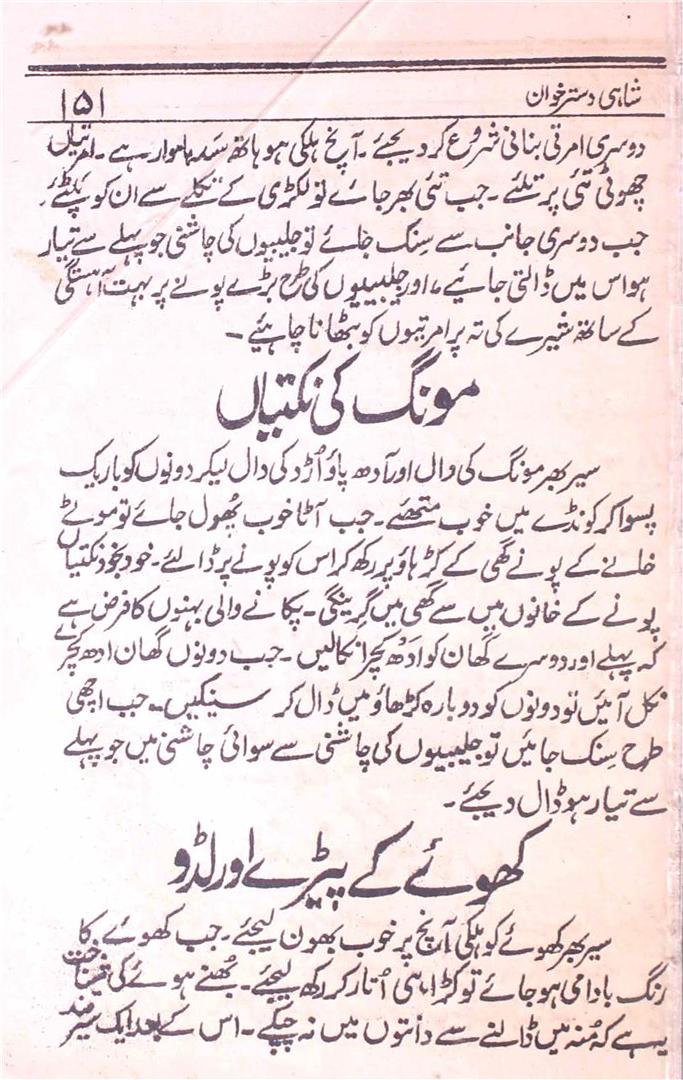 شاہی دسترخوان
۱۵۱
دوسری امرتی بنانی شروع کر دیجئے۔ آنچ ہلکی ہو ہاتھ سَدہا ہوار ہے۔ امرتیاں
چھوٹی تئی پر تلئے۔ جب تئی بھر جائے تو لکڑی کے تکلے سے ان کو پلٹئے،
جب دوسری جانب سے سِنک جائے تو جلیبیوں کی چاشنی جو پہلے سے تیار
ہو اس میں ڈالتی جائیے، اور جلیبیوں کی طرح بڑے پونے پر بہت آہستگی
کے ساتھ شیرے کی تہ پر امرتیوں کو بٹھانا چاہیئے۔
مونگ کی نکتیاں
سیر بھر مونگ کی دال اور آدھ پاؤ اُڑد کی دال لیکر دونوں کو باریک
پسوا کر کونڈے میں خوب متھئے۔ جب آٹا خوب پھُول جائے تو موٹے
خانے کے پونے گھی کے کڑہاؤ پر رکھ کر اس کو پونے پر ڈالئے۔ خود بخود نکتیاں
پونے کے خانوں میں سے گھی میں گرینگی۔ پکانے والی بہنوں کا فرض ہے
کہ پہلے اور دوسرے گھان کو ادھ کچرا نکالیں۔ جب دونوں گھان ادھ کچرے
نکل آئیں تو دونوں کو دوبارہ کڑھاؤ میں ڈال کر سینکیں۔ جب اچھی
طرح سِنک جائیں تو جلیبیوں کی چاشنی سے سوائی چاشنی میں جو پہلے
سے تیار ہو ڈال دیجئے۔
کھوئے کے پیڑے اور لڈو
سیر بھر کھوئے کو ہلکی آنچ پر خوب بھون لیجئے۔ جب کھوئے کا
رنگ بادامی ہو جائے تو کڑاہی اُتار کر رکھ لیجئے۔ بھُنے ہوئے کی شناخت
یہ ہے کہ مُنہ میں ڈالنے سے دانتوں میں نہ چپکے۔ اس کے بعد ایک سیر قند